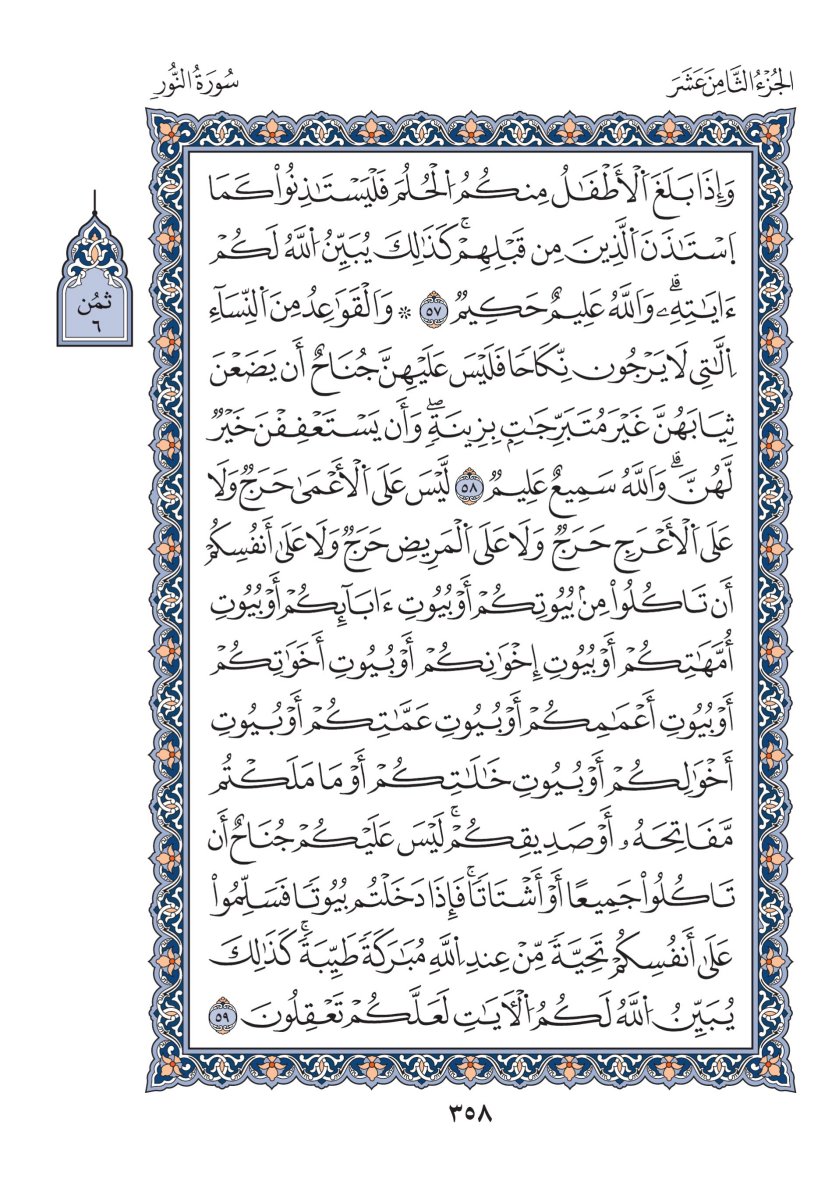 الجُزْءُ الثَّامِنَ عَشَرَ
سُورَةُ النُّورِ
وَإِذَا بَلَغَ اَلْأَطْفَٰلُ مِنكُمُ اُلْحُلُمَ فَلْيَسْتَٰذِنُواْ كَمَا
اَسْتَٰذَنَ اَلَّذِينَ مِن قَبْلِهِمْۚ كَذَٰلِكَ يُبَيِّنُ اُللَّهُ لَكُمْ
ءَايَٰتِهِۦۗ وَاللَّهُ عَلِيمٌ حَكِيمٌ ٥٧ ۞ وَالْقَوَٰعِدُ مِنَ اَلنِّسَآءِ
اِلَّٰتِي لَا يَرْجُونَ نِكَاحًا فَلَيْسَ عَلَيْهِنَّ جُنَاحٌ أَن يَضَعْنَ
ثِيَابَهُنَّ غَيْرَ مُتَبَرِّجَٰتِۭ بِزِينَةٍۖ وَأَن يَسْتَعْفِفْنَ خَيْرٌ
لَّهُنَّۗ وَاللَّهُ سَمِيعٌ عَلِيمٌ ٥٨ لَّيْسَ عَلَى اَلْأَعْمَىٰ حَرَجٌ وَلَا
عَلَى اَلْأَعْرَجِ حَرَجٌ وَلَا عَلَى اَلْمَرِيضِ حَرَجٌ وَلَا عَلَىٰ أَنفُسِكُمْ
أَن تَاكُلُواْ مِنۢ بُيُوتِكُمْ أَوْ بُيُوتِ ءَابَآئِكُمْ أَوْ بُيُوتِ
أُمَّهَٰتِكُمْ أَوْ بُيُوتِ إِخْوَٰنِكُمْ أَوْ بُيُوتِ أَخَوَٰتِكُمْ
أَوْ بُيُوتِ أَعْمَٰمِكُمْ أَوْ بُيُوتِ عَمَّٰتِكُمْ أَوْ بُيُوتِ
أَخْوَٰلِكُمْ أَوْ بُيُوتِ خَٰلَٰتِكُمْ أَوْ مَا مَلَكْتُم
مَّفَاتِحَهُۥ أَوْ صَدِيقِكُمْۚ لَيْسَ عَلَيْكُمْ جُنَاحٌ أَن
تَاكُلُواْ جَمِيعًا أَوْ أَشْتَاتًاۚ فَإِذَا دَخَلْتُم بُيُوتًا فَسَلِّمُواْ
عَلَىٰ أَنفُسِكُمْ تَحِيَّةً مِّنْ عِندِ اِللَّهِ مُبَٰرَكَةً طَيِّبَةًۚ كَذَٰلِكَ
يُبَيِّنُ اُللَّهُ لَكُمُ اُلْأٓيَٰتِ لَعَلَّكُمْ تَعْقِلُونَ ٥٩
ثمُن
٦
٣٥٨